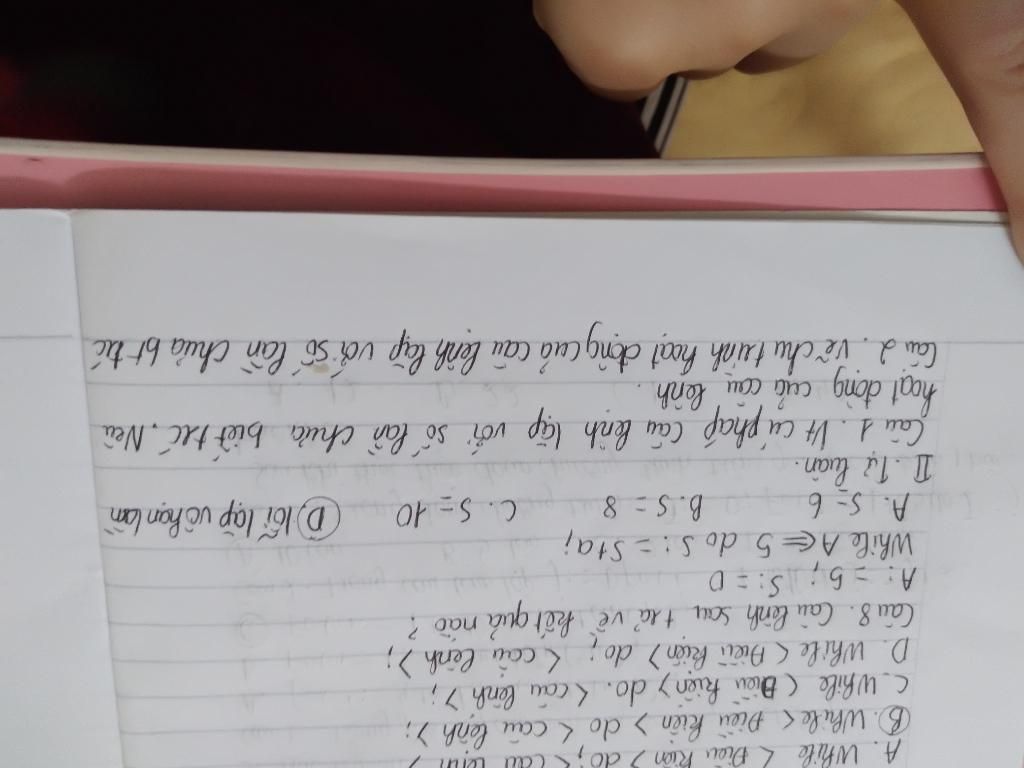 A. While < Điều kiện > do; < câu lệnh >
B. While < Điều kiện > do < câu lệnh >;
C. While < Điều kiện > do. < câu lệnh >;
D. While < Điều kiện > do; < câu lệnh >;
Câu 8. Câu lệnh sau trả về kết quả nào?
A: = 5; S: = 0
While A <= 5 do S: = S+a;
A. S = 6 B. S = 8 C. S = 10 D. lỗi lặp vô hạn lần
II. Tự luận.
Câu 1. Vt cú pháp câu lệnh lặp với số lần chưa biết trc. Nêu
hoạt động của câu lệnh.
Câu 2. vẽ chu trình hoạt động của câu lệnh lặp với số lần chưa bt trc